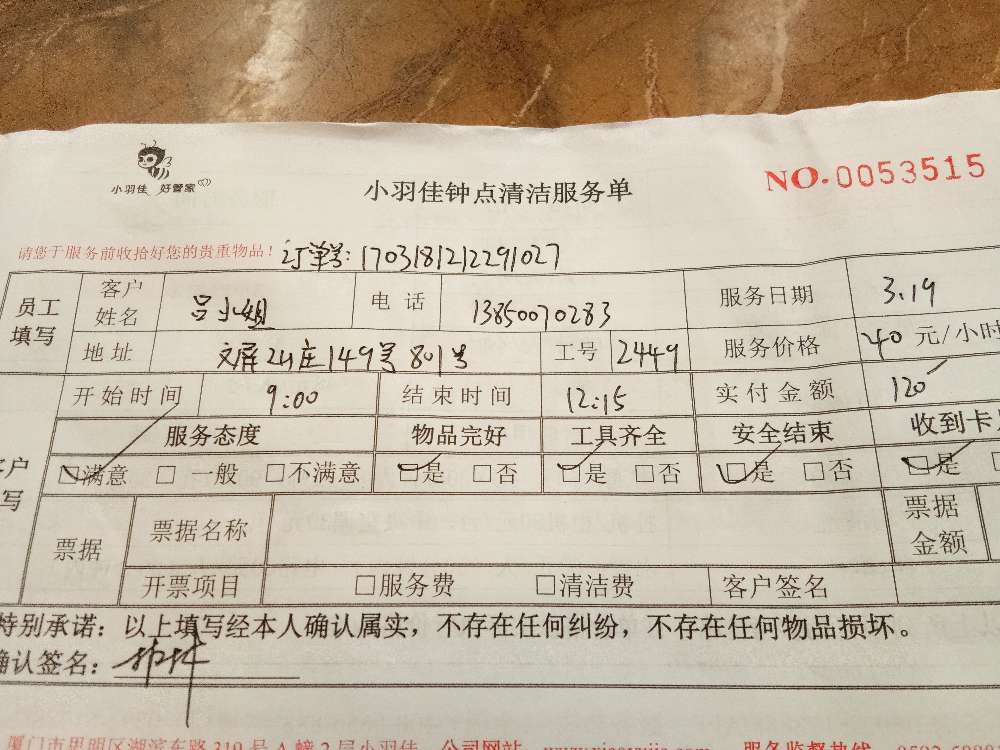 小羽佳 好管家
小羽佳钟点清洁服务单
NO.0053515
请您于服务前收拾好您的贵重物品！ 订单号:1703181212291027
员工填写 客户姓名 吕小姐 电话 13850070283 服务日期 3.19
地址 文屏山庄149号801号 工号 2449 服务价格 40 元/小时
开始时间 9:00 结束时间 12:15 实付金额 120
服务态度 物品完好 工具齐全 安全结束 收到卡
户写 ☑满意 □一般 □不满意 ☑是 □否 ☑是 □否 ☑是 □否 ☑是
票据 票据名称 票据金额
开票项目 □服务费 □清洁费 客户签名
特别承诺：以上填写经本人确认属实，不存在任何纠纷，不存在任何物品损坏。
确认签名：
厦门市思明区湖滨东路319号A幢2层小羽佳 公司网站 服务监督热线